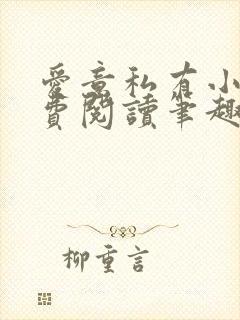 愛意私有小
費閱讀筆趣
柳重言